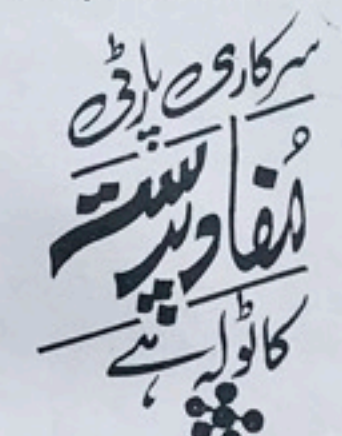 سرکاری پارٹی
مُفاد پرست
کا ٹولہ ہے